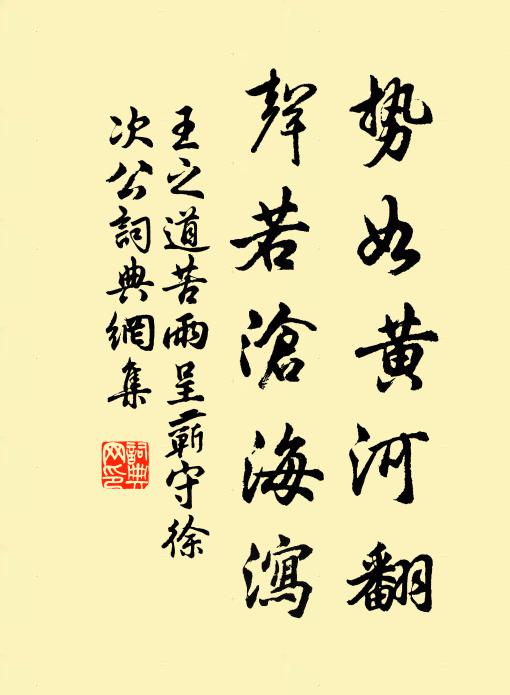 势如黄河翻
声若滄海瀉
王之道苦雨呈蕲守徐
次公詞典網集
詞典
网印